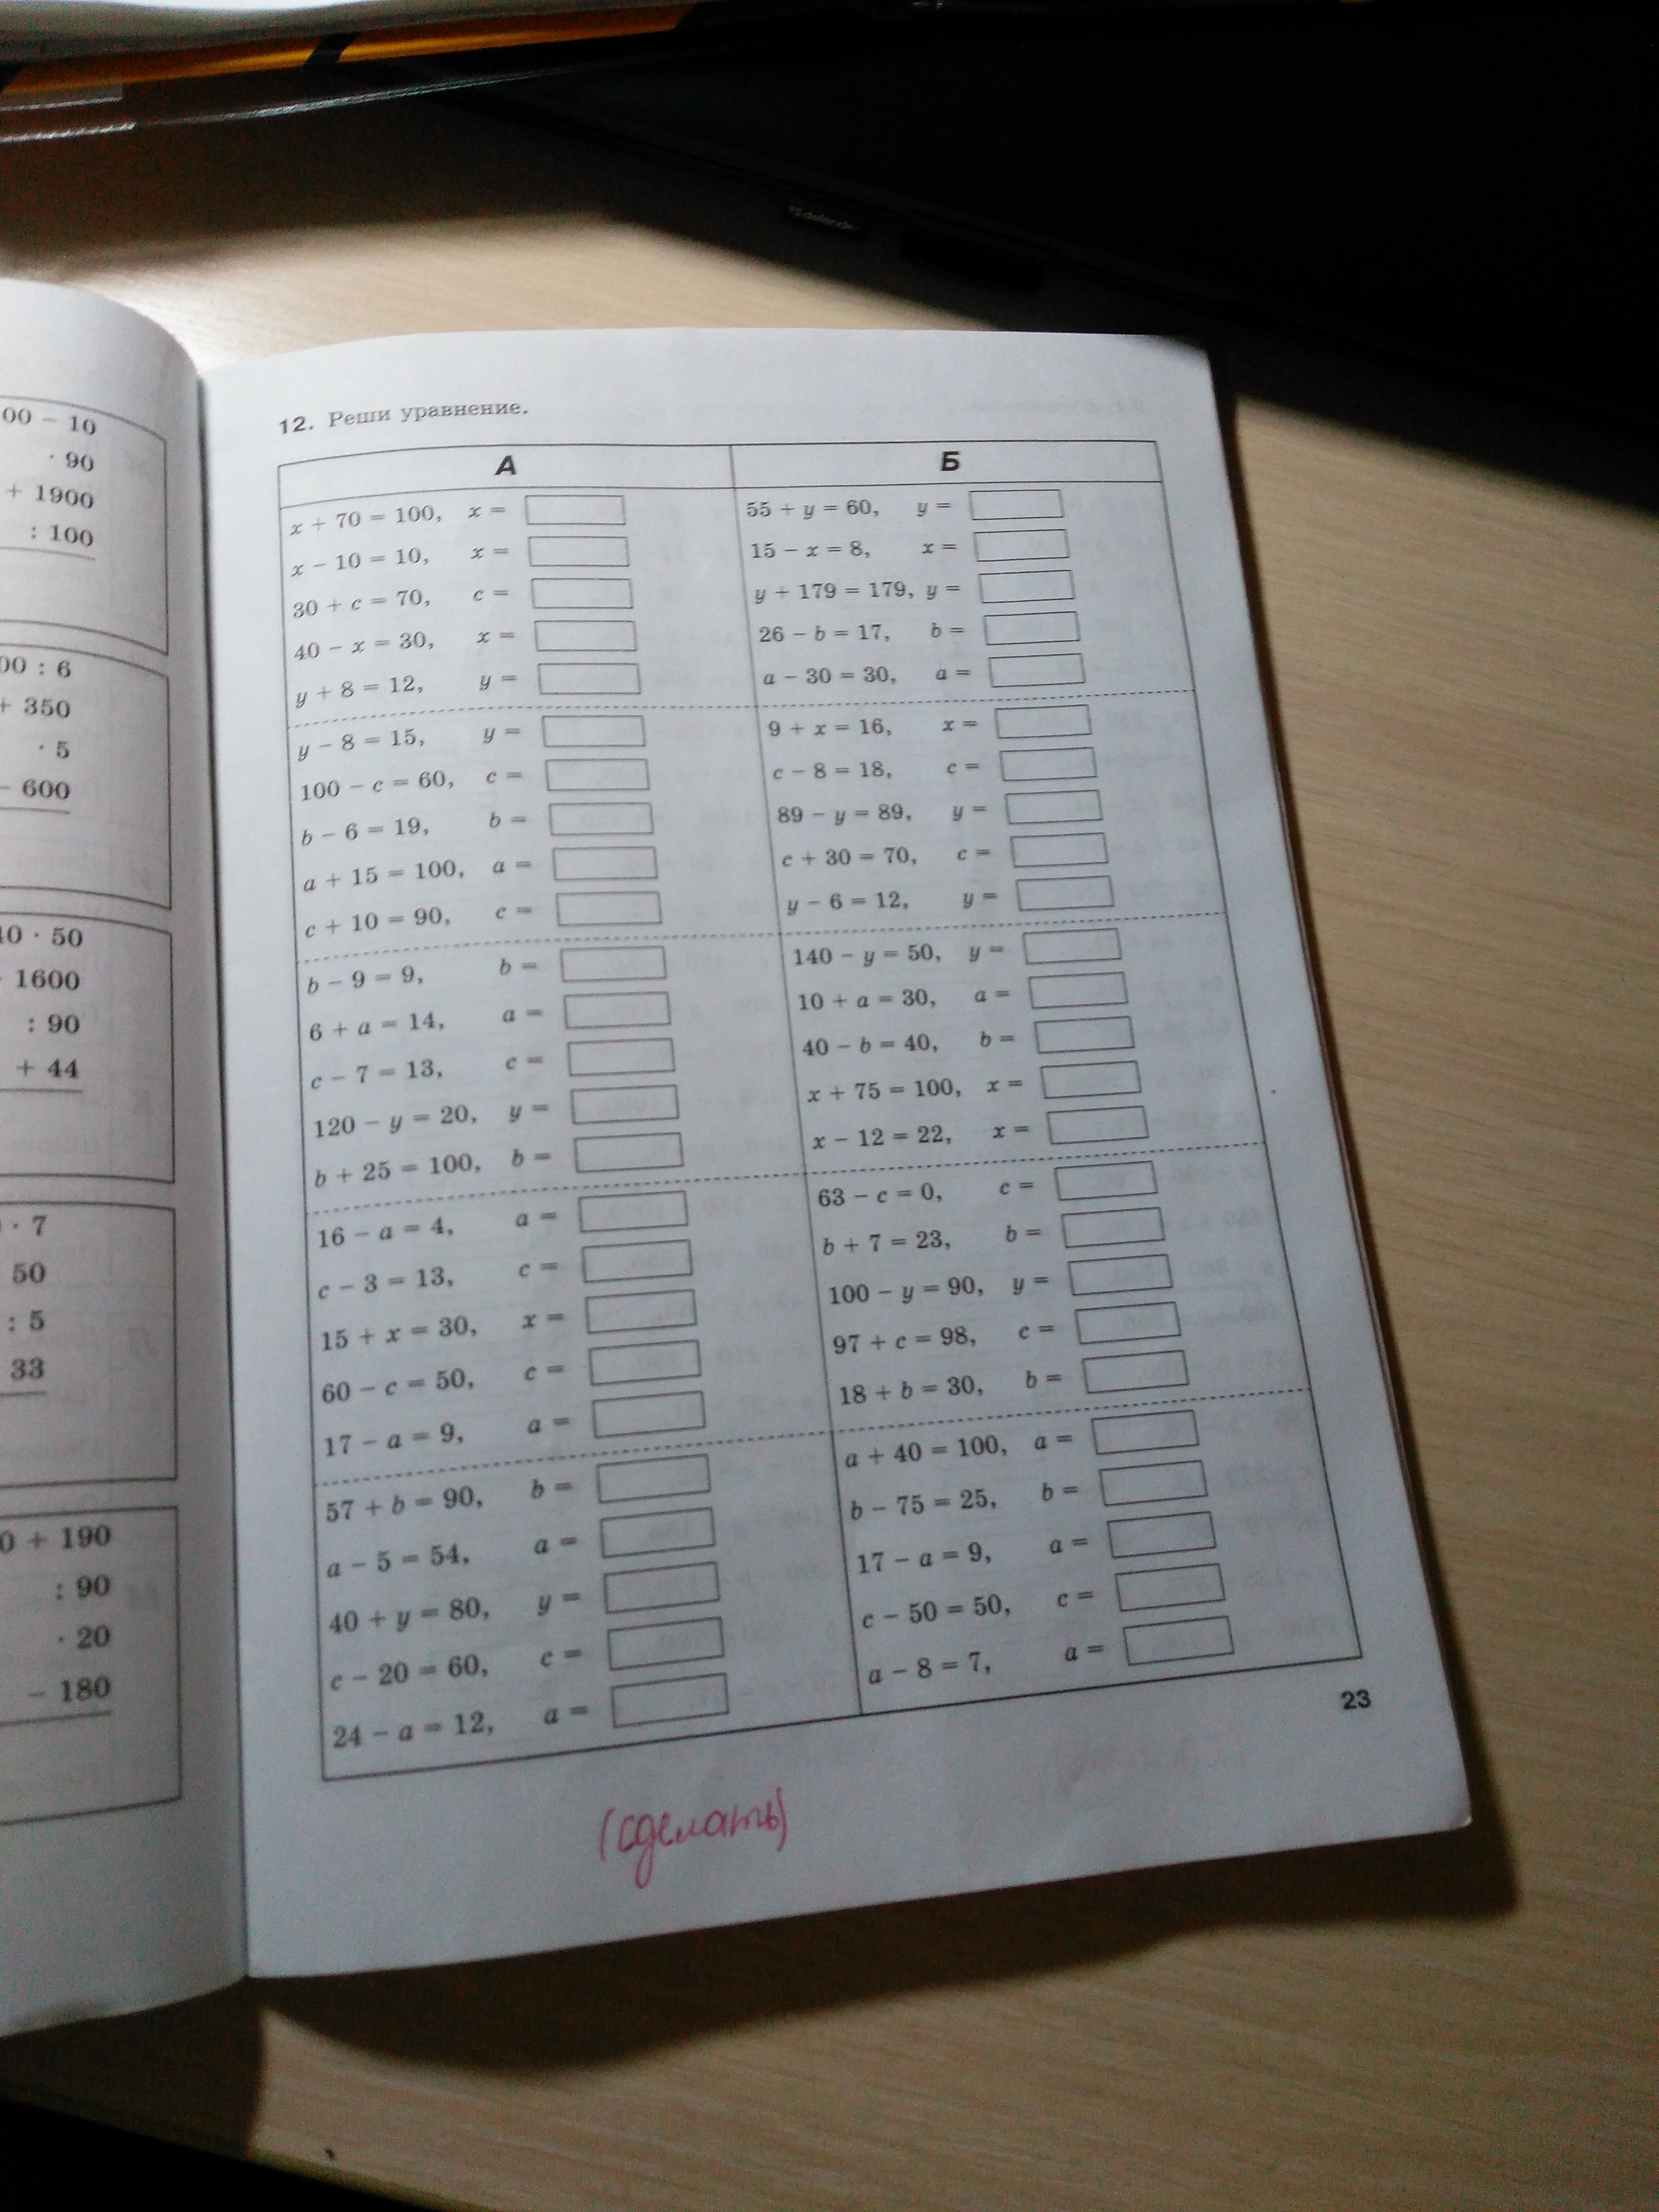 00 − 10
· 90
+ 1900
: 100
00 : 6
+ 350
· 5
− 600
40 · 50
1600
: 90
+ 44
· 7
50
: 5
33
0 + 190
: 90
· 20
− 180
12. Реши уравнение.
А
x + 70 = 100, x =
x − 10 = 10, x =
30 + c = 70, c =
40 − x = 30, x =
y + 8 = 12, y =
y − 8 = 15, y =
100 − c = 60, c =
b − 6 = 19, b =
a + 15 = 100, a =
c + 10 = 90, c =
b − 9 = 9, b =
6 + a = 14, a =
c − 7 = 13, c =
120 − y = 20, y =
b + 25 = 100, b =
16 − a = 4, a =
c − 3 = 13, c =
15 + x = 30, x =
60 − c = 50, c =
17 − a = 9, a =
57 + b = 90, b =
a − 5 = 54, a =
40 + y = 80, y =
c − 20 = 60, c =
24 − a = 12, a =
Б
55 + y = 60, y =
15 − x = 8, x =
y + 179 = 179, y =
26 − b = 17, b =
a − 30 = 30, a =
9 + x = 16, x =
c − 8 = 18, c =
89 − y = 89, y =
c + 30 = 70, c =
y − 6 = 12, y =
140 − y = 50, y =
10 + a = 30, a =
40 − b = 40, b =
x + 75 = 100, x =
x − 12 = 22, x =
63 − c = 0, c =
b + 7 = 23, b =
100 − y = 90, y =
97 + c = 98, c =
18 + b = 30, b =
a + 40 = 100, a =
b − 75 = 25, b =
17 − a = 9, a =
c − 50 = 50, c =
a − 8 = 7, a =
23
(сделать)